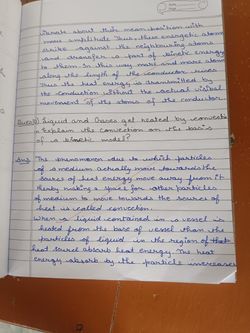 vibrate about their mean position with
more amplitude Thus, these energetic atoms
strike against the neighbouring atoms
and transfer a part of kinetic energy
to them. In this way, more and more atoms
along the length of the conductor
Thus the heat energy is transmitted by
the conduction without the actual
movement of the atoms of the conductor
Ques) Liquid and Gases get heated by convection
Explain the convection on the basis
of a kinetic model?
Ans) The phenomenon due to which particles
of a medium actually move towards the
source of heat energy move away from it
thereby making a space for other particles
of medium to move towards the source of
heat is called convection.
When a liquid contained in a vessel is
heated from the base of vessel than the
particles of liquid in the region of that
heat source absorb heat energy. The heat
energy absorb by the particle increases